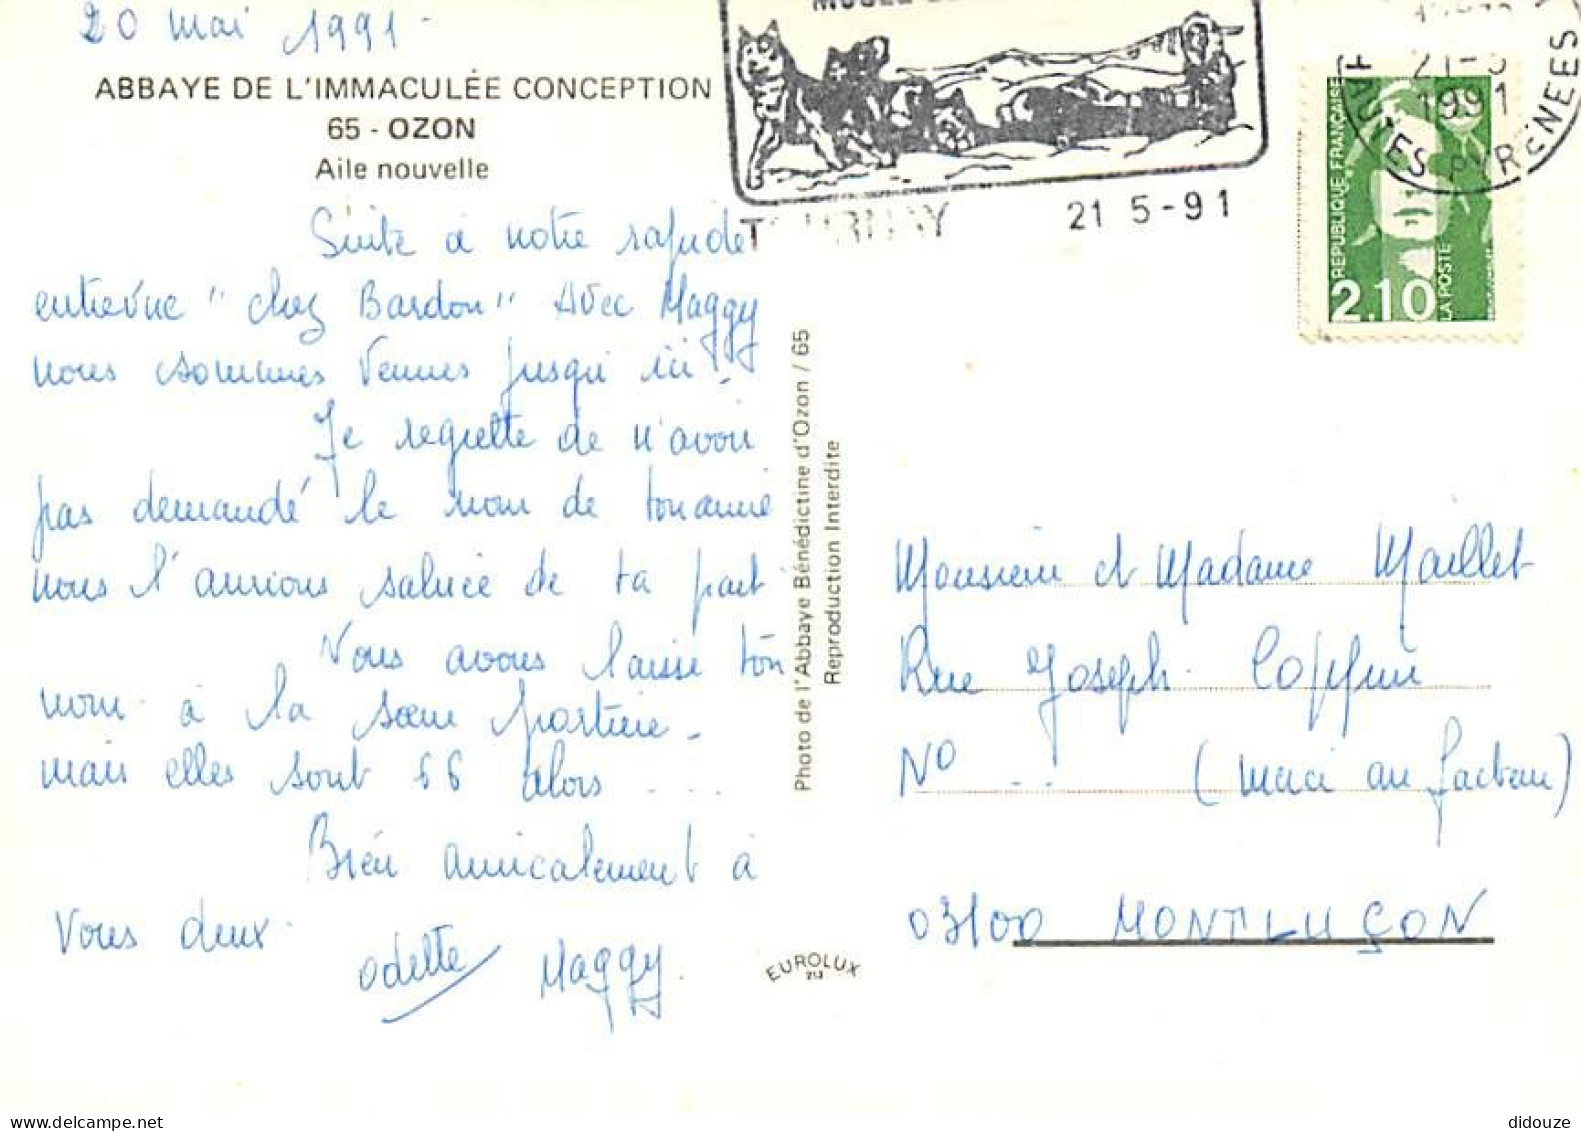 20 mai 1991-
ABBAYE DE L'IMMACULÉE CONCEPTION
65 - OZON
Aile nouvelle
Suite à notre rapide
entrevue "chez Bardon" avec Maggy
nous sommes venues jusqu'ici.
Je regrette de n'avoir
pas demandé le nom de ton amie
nous l'aurions saluée de ta part
Vous avons laissé ton
nom à la sœur portière -
mais elles sont 66 alors ....
Bien amicalement à
vous deux.
Odette Maggy.
Photo de l'Abbaye Bénédictine d'Ozon / 65
Reproduction Interdite
EUROLUX
213
TOURNAY 21 5-91
21-5
1991
HAUTES PYRENEES
REPUBLIQUE FRANÇAISE
2.10
LA POSTE
Monsieur et Madame Maillet
Rue Joseph Coppin
N° .. (merci au facteur)
03100 MONTLUÇON
didouze